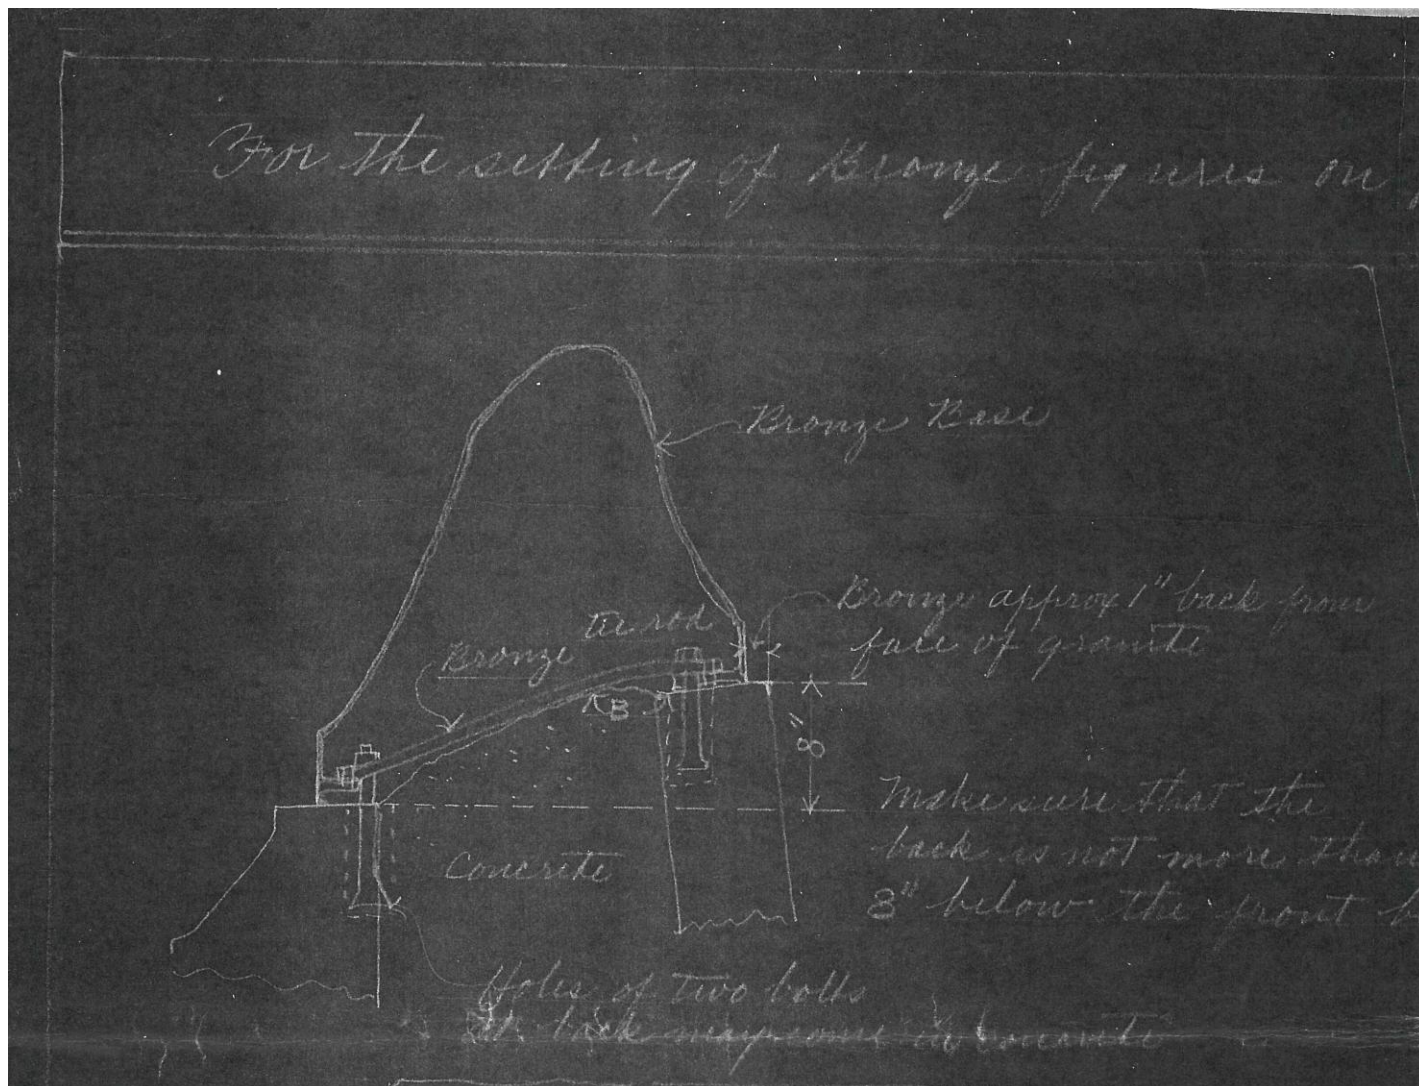 For the setting of Bronze figures on
Bronze Base
Bronze approx 1" back from
face of granite
tie rod
Bronze
B
8"
Make sure that the
back is not more than
8" below the front
Concrete
Holes of two bolts
at back may come in concrete